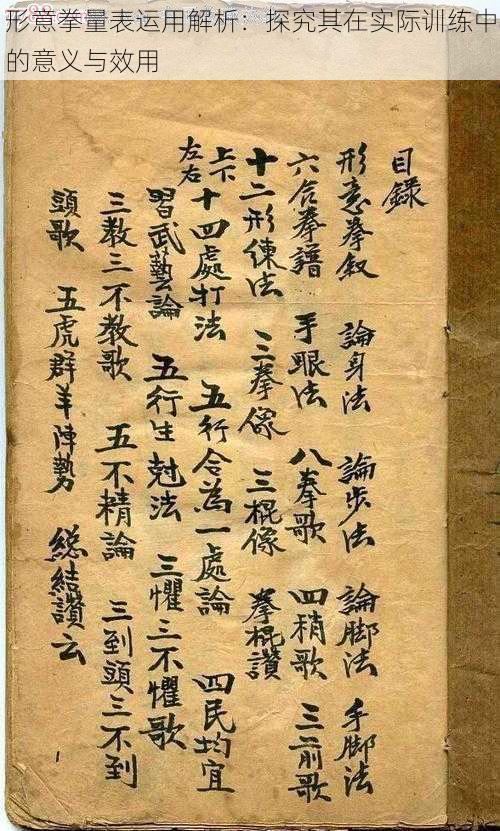 形意拳量表运用解析：探究其在实际训练中
的意义与效用
目錄
形意拳叙 論身法 論步法 論脚法 手脚法
六合拳譜 手眼法 八拳歌 四稍歌 三前歌
十二形練法 三拳像 三棍像 拳棍讃
上下左右十四處打法 五行合為一處論 四民均宜
習武藝論 五行生尅法 三懼三不懼歌
三教三不教歌 五不精論 三到頭三不到
頭歌 五虎群羊陣勢 總結讃云